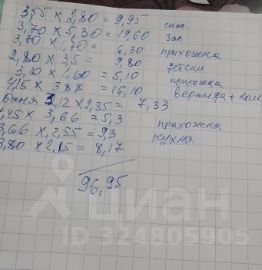 3,55 × 2,80 = 9,95 спал.
3,70 × 5,30 = 19,60 зал
3,70 × 1,70 = 6,30 прихожка
2,80 × 3,5 = 9,80
3,20 × 1,60 = 5,10 прихожка
4,15 × 3,88 = 16,10 веранда +
баня 3,12 × 2,35 = 7,33
1,45 × 3,66 = 5,3 прахожка
3,66 × 2,55 = 9,3 кухня
3,80 × 2,15 = 8,17
96,95
циан
ID 324805905